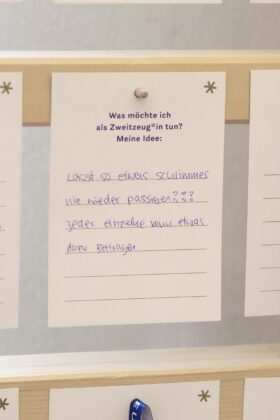 Was möchte ich
als Zweitzeug*in tun?
Meine Idee:
Lasst so etwas schlimmes
nie wieder passieren!!!
jeder einzelne kann etwas
dazu beitragen